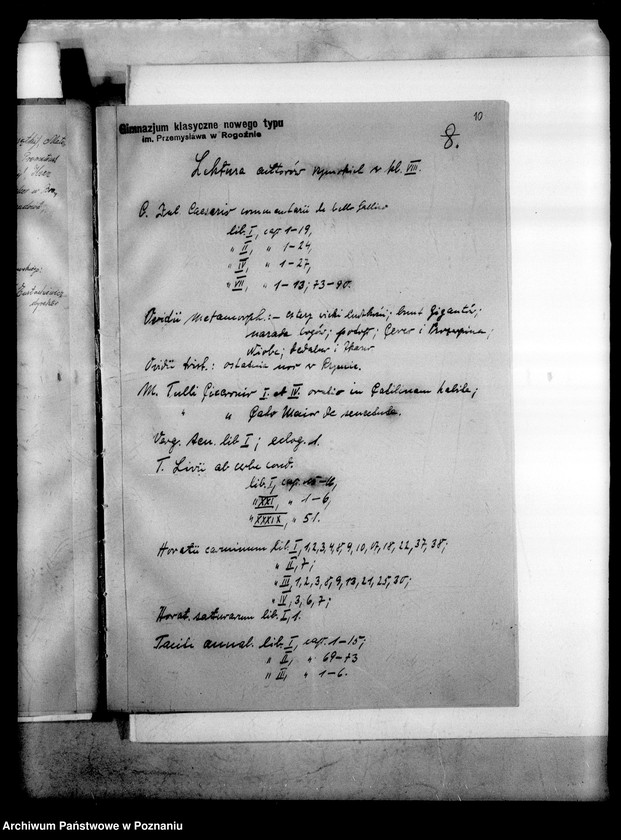 10
8.
Gimnazjum klasyczne nowego typu
im. Przemysława w Rogoźnie
Lektura autorów rzymskich w kl. VIII.
C. Jul. Caesaris commentarii de bello Gallico
lib. I, cap. 1-19,
" II, " 1-24,
" IV, " 1-27,
" VII, " 1-13; 73-90.
Ovidii Metamorph.: - cztery wieki ludzkości; bunt Gigantów;
narada bogów; potop; Cerer i Prozerpina;
Niobe; Dedalus i Ikar
Ovidii trist.: ostatnia noc w Rzymie.
M. Tulli Ciceronis I. et IV. oratio in Catilinam habita;
" " Cato Maior de senectute.
Verg. Aen. lib I; eclog. 1.
T. Livii ab urbe cond.
lib. I, cap. 15-16,
" XXI, " 1-6,
" XXXIX, " 51.
Horatii carminum lib. I, 1,2,3,4,8,9,10,17,18,22,37,38;
" II, 7;
" III, 1,2,3,8,9,13,21,25,30;
" IV, 3,6,7;
Horat. saturarum lib. I, 1.
Taciti annal. lib. I, cap. 1-15;
" II, " 69-73
" III, " 1-6.
Archiwum Państwowe w Poznaniu